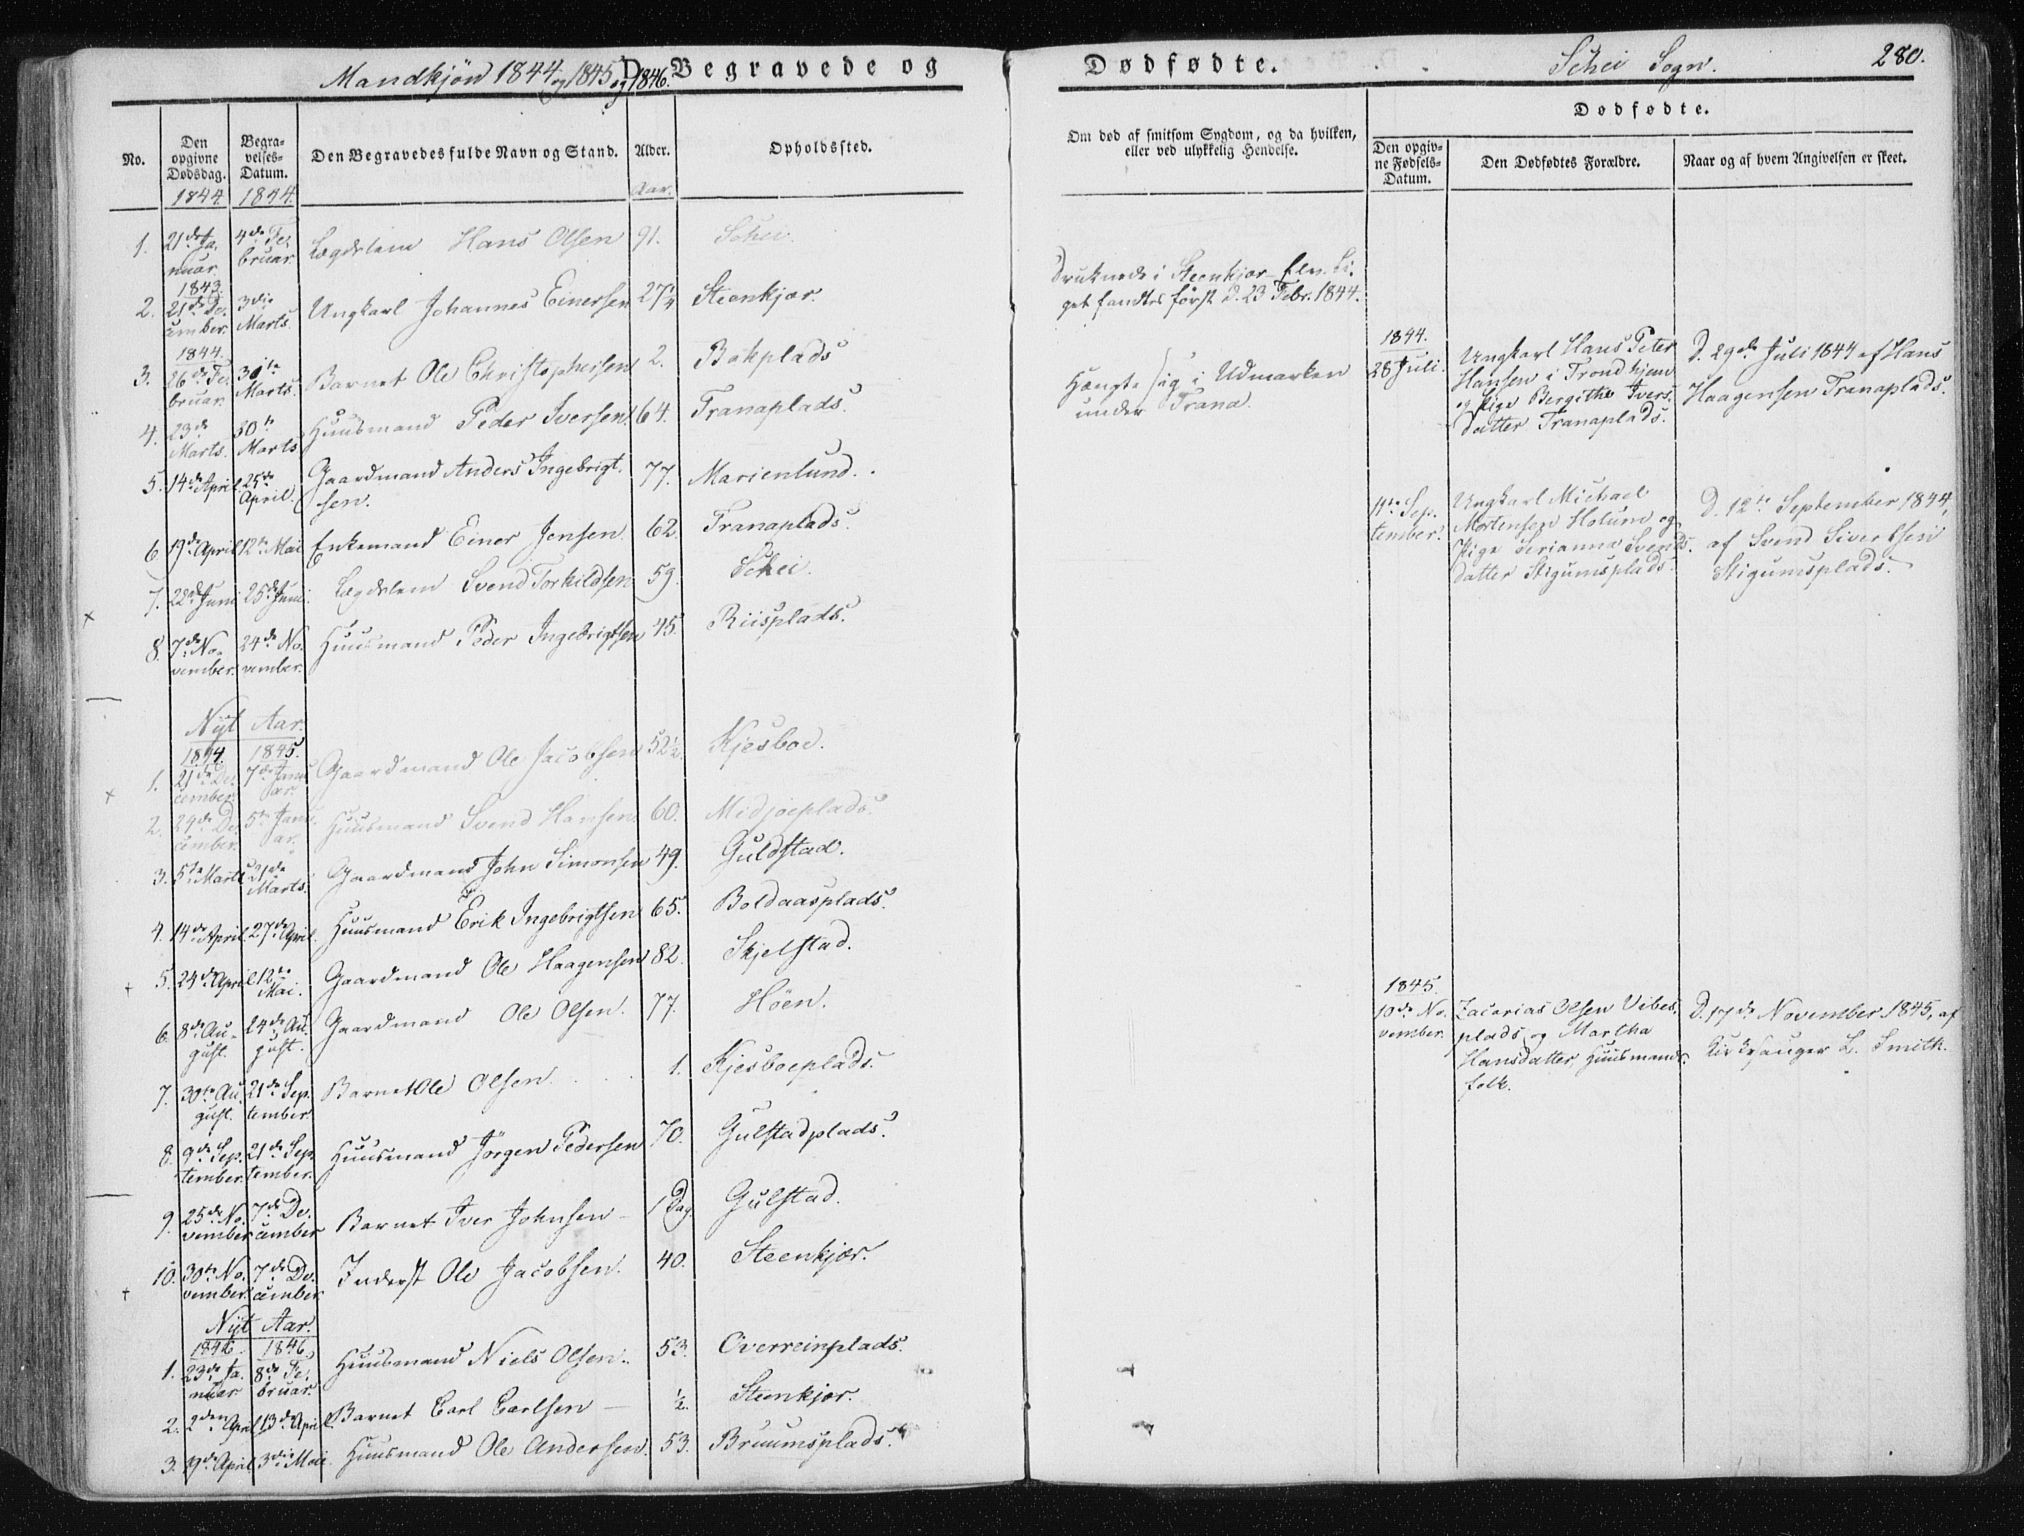 Mandkjøn 1844 og 1845 og 1846. D. Begravede og Dødfødte. Schei Sogn. 280.
No.
Den opgivne Dødsdag.
Begravelses-Datum.
Den Begravedes fulde Navn og Stand.
Alder.
Opholdssted.
Om død af smitsom Sygdom, og da hvilken, eller ved ulykkelig Hendelse.
Dødfødte.
Den opgivne Fødsels-Datum.
Den Dødfødtes Forældre.
Naar og af hvem Angivelsen er skeet.
1844. 1844. Aar.
1. 21de Januar. 4de Februar. Lægdslem Hans Olsen 91. Schei.
1843.
2. 21de December. 3die Marts. Ungkarl Johannes Einersen 27¼ Steenkjær. Druknede i Steenkjær Elv. Liget fandtes først d. 23 Febr. 1844.
1844.
3. 26de Februar. 30te Marts. Barnet Ole Christophersen 2. Bøkplads
4. 23de Marts. 30te Marts Huusmand Peder Iversen. 64. Tranaplads. Hængte sig i Udmarken under Trana.
5. 14de April. 25de April. Gaardmand Anders Ingebrigtsen. 77. Marienlund.
6 19de April 12te Mai Enkemand Einer Jensen. 62. Tranaplads.
7. 22de Juni 25de Juni. Lægdslem Svend Torkildsen 59. Schei.
8. 7de November. 24de November. Huusmand Peder Ingebrigtsen 45. Riisplads.
Nyt Aar.
1844. 1845.
1. 21de December. 7de Januar. Gaardmand Ole Jacobsen 52½ Kjesboe.
2. 29de December. 5te Januar. Huusmand Svend Hansen 60. Midjoeplads.
3. 5te Marts 21de Marts. Gaardmand John Simonsen 49. Guldstad.
4. 14de April 27de April. Huusmand Erik Ingebrigtsen 65. Boldaasplads.
5. 24de April 12te Mai. Gaardmand Ole Haagensen 82. Skjelstad.
6. 8de August. 24de August. Gaardmand Ole Olsen. 77. Höen.
7. 30te August. 21de September. Barnet Ole Olsen. 1. Kjesboeplads.
8. 9de September. 21de September. Huusmand Jörgen Pedersen 70. Gulstadplads.
9. 25de November 7de December Barnet Iver Johnsen 1 Dag. Gulstad.
10. 30te November. 7de December. Inderst Ole Jacobsen. 40. Steenkjær.
Nyt Aar.
1846. 1846.
1. 23de Januar 8de Februar. Huusmand Niels Olsen. 53. Overreinplads.
2. 2den April 13de April. Barnet Carl Carlsen ½. Steenkjær.
3. 19de April 3die Mai. Huusmand Ole Andersen. 53. Bruumsplads.
1844.
28 Juli. Ungkarl Hans Peter D. 29de Juli 1844 af Hans
Hansen i Trondhjem Haagensen Tranaplads.
og Pige Bergitha Ivers-
datter Tranaplads.
11te September. Ungkarl Michael D. 12te September 1844,
Mortensen Holum og af Svend Sivertsen
Pige Serianna Svends- Stigumsplads.
datter Stigumsplads.
1845.
10de November. Zacarias Olsen Vibes- D. 17de November 1845, af
plads og Martha Kirkesanger L. Smith.
Hansdatter, Huusmands-
folk.